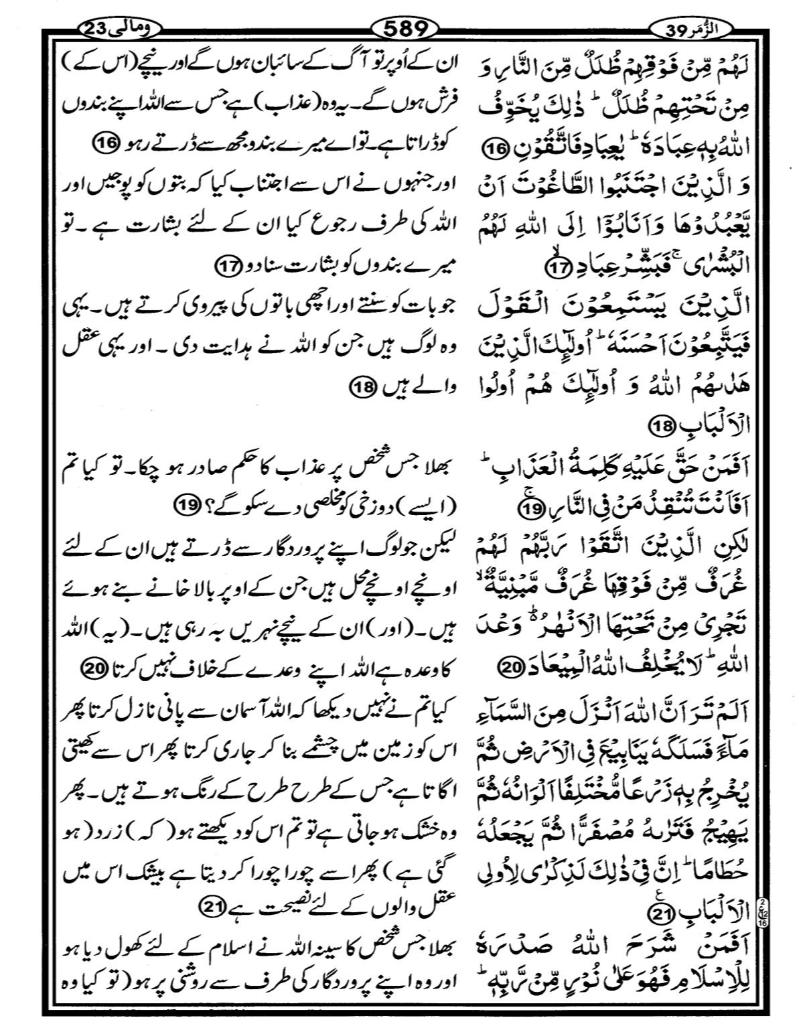 الزُّمَر 39
589
ومالی 23
لَهُمْ مِّنْ فَوْقِهِمْ ظُلَلٌ مِّنَ النَّارِ وَ
مِنْ تَحْتِهِمْ ظُلَلٌ ؕ ذٰلِكَ يُخَوِّفُ
اللّٰهُ بِهٖ عِبَادَهٗ ؕ يٰعِبَادِ فَاتَّقُوْنِ 16
وَ الَّذِيْنَ اجْتَنَبُوا الطَّاغُوْتَ اَنْ
يَّعْبُدُوْهَا وَاَنَابُوْۤا اِلَى اللّٰهِ لَهُمُ
الْبُشْرٰى ۚ فَبَشِّرْ عِبَادِ ۙ 17
الَّذِيْنَ يَسْتَمِعُوْنَ الْقَوْلَ
فَيَتَّبِعُوْنَ اَحْسَنَهٗ ؕ اُولٰٓئِكَ الَّذِيْنَ
هَدٰىهُمُ اللّٰهُ وَ اُولٰٓئِكَ هُمْ اُولُوا
الْاَلْبَابِ 18
اَفَمَنْ حَقَّ عَلَيْهِ كَلِمَةُ الْعَذَابِ ؕ
اَفَاَنْتَ تُنْقِذُ مَنْ فِى النَّارِ ۚ 19
لٰكِنِ الَّذِيْنَ اتَّقَوْا رَبَّهُمْ لَهُمْ
غُرَفٌ مِّنْ فَوْقِهَا غُرَفٌ مَّبْنِيَّةٌ ۙ
تَجْرِىْ مِنْ تَحْتِهَا الْاَنْهٰرُ ۬ؕ وَعْدَ
اللّٰهِ ؕ لَا يُخْلِفُ اللّٰهُ الْمِيْعَادَ 20
اَلَمْ تَرَ اَنَّ اللّٰهَ اَنْزَلَ مِنَ السَّمَآءِ
مَآءً فَسَلَكَهٗ يَنَابِيْعَ فِى الْاَرْضِ ثُمَّ
يُخْرِجُ بِهٖ زَرْعًا مُّخْتَلِفًا اَلْوَانُهٗ ثُمَّ
يَهِيْجُ فَتَرٰىهُ مُصْفَرًّا ثُمَّ يَجْعَلُهٗ
حُطَامًا ؕ اِنَّ فِىْ ذٰلِكَ لَذِكْرٰى لِاُولِى
الْاَلْبَابِ ع 21
اَفَمَنْ شَرَحَ اللّٰهُ صَدْرَهٗ
لِلْاِسْلَامِ فَهُوَ عَلٰى نُوْرٍ مِّنْ رَّبِّهٖ ؕ
ان کے اُوپر تو آگ کے سائبان ہوں گے اور نیچے (اس کے)
فرش ہوں گے۔ یہ وہ (عذاب) ہے جس سے اللہ اپنے بندوں
کو ڈراتا ہے۔ تو اے میرے بندو مجھ سے ڈرتے رہو 16
اور جنہوں نے اس سے اجتناب کیا کہ بتوں کو پوجیں اور
اللہ کی طرف رجوع کیا ان کے لئے بشارت ہے ۔ تو
میرے بندوں کو بشارت سنا دو 17
جو بات کو سنتے اور اچھی باتوں کی پیروی کرتے ہیں۔ یہی
وہ لوگ ہیں جن کو اللہ نے ہدایت دی ۔ اور یہی عقل
والے ہیں 18
بھلا جس شخص پر عذاب کا حکم صادر ہو چکا۔ تو کیا تم
(ایسے) دوزخی کو مخلصی دے سکو گے؟ 19
لیکن جو لوگ اپنے پروردگار سے ڈرتے ہیں ان کے لئے
اونچے اونچے محل ہیں جن کے اوپر بالا خانے بنے ہوئے
ہیں۔ (اور) ان کے نیچے نہریں بہ رہی ہیں۔ (یہ) اللہ
کا وعدہ ہے اللہ اپنے وعدے کے خلاف نہیں کرتا 20
کیا تم نے نہیں دیکھا کہ اللہ آسمان سے پانی نازل کرتا پھر
اس کو زمین میں چشمے بنا کر جاری کرتا پھر اس سے کھیتی
اگاتا ہے جس کے طرح طرح کے رنگ ہوتے ہیں۔ پھر
وہ خشک ہو جاتی ہے تو تم اس کو دیکھتے ہو (کہ) زرد (ہو
گئی ہے) پھر اسے چورا چورا کر دیتا ہے بیشک اس میں
عقل والوں کے لئے نصیحت ہے 21
بھلا جس شخص کا سینہ اللہ نے اسلام کے لئے کھول دیا ہو
اور وہ اپنے پروردگار کی طرف سے روشنی پر ہو (تو کیا وہ